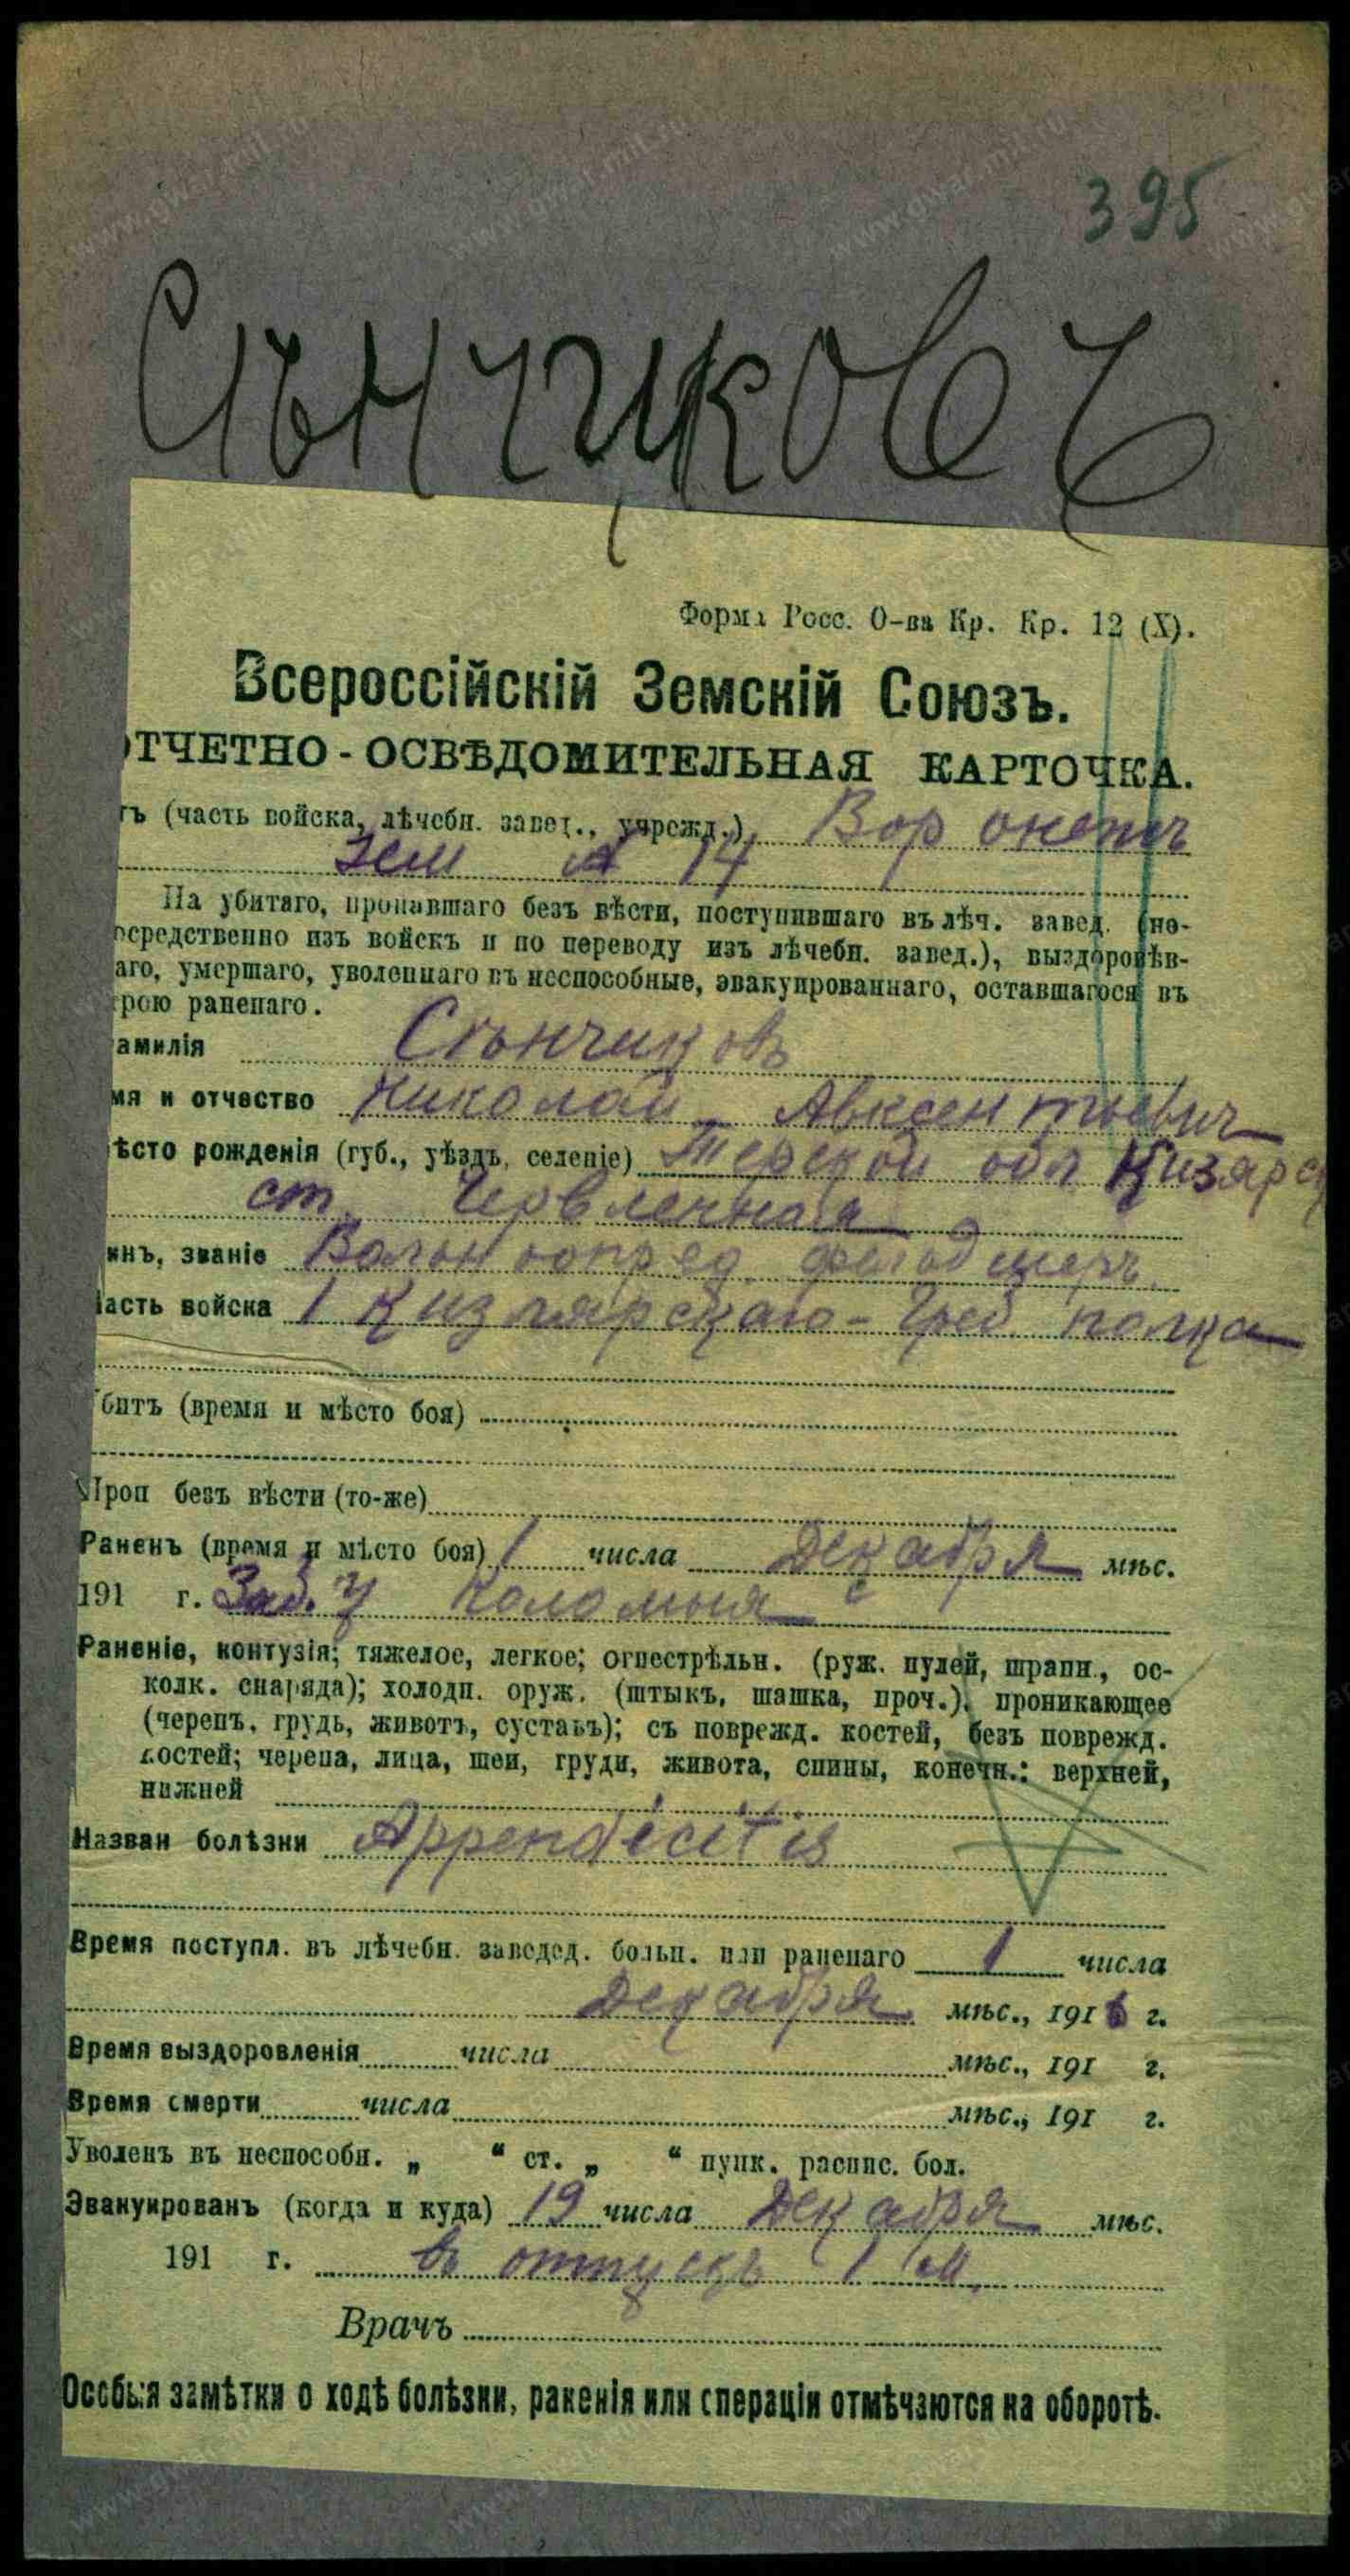 395
Сѣнчиковъ
Форма Росс. О-ва Кр. Кр. 12 (X).
Всероссійскій Земскій Союзъ.
ОТЧЕТНО-ОСВѢДОМИТЕЛЬНАЯ КАРТОЧКА.
тъ (часть войска, лѣчебн. завед., учрежд.)
Зем 14
На убитаго, пропавшаго безъ вѣсти, поступившаго въ лѣч. завед. (не-
осредственно изъ войскъ и по переводу изъ лѣчебн. завед.), выздоровѣв-
аго, умершаго, уволеннаго въ неспособные, эвакуированнаго, оставшагося въ
трою раненаго.
амилія Сѣнчиковъ
мя и отчество Николай Авксентьевич
ѣсто рожденія (губ., уѣздъ, селеніе) Терской обл Кизярс
ст. Червленная
инъ, званіе Вольноопред. фельдшеръ
Часть войска 1 Кизлярскаго-Греб полка
Убитъ (время и мѣсто боя)
Проп безъ вѣсти (то-же)
Раненъ (время и мѣсто боя) 1 числа Декабря мѣс.
191 г. Заб. Коломыя
Раненіе, контузія; тяжелое, легкое; огнестрѣльн. (руж. пулей, шрапн., ос-
колк. снаряда); холодн. оруж. (штыкъ, шашка, проч.), проникающее
(черепъ, грудь, животъ, суставъ); съ поврежд. костей, безъ поврежд.
костей; черепа, лица, шеи, груди, живота, спины, конечн.: верхней,
нижней
Назван болѣзни Appendicitis
Время поступл. въ лѣчебн. заведед. больн. или раненаго 1 числа
Декабря мѣс., 1916 г.
Время выздоровленія числа мѣс., 191 г.
Время смерти числа мѣс., 191 г.
Уволенъ въ неспособн. „ “ ст. „ “ пунк. распис. бол.
Эвакуированъ (когда и куда) 19 числа Декабря мѣс.
191 г. въ отпускъ 1 м.
Врачъ
Особыя замѣтки о ходѣ болѣзни, раненія или операціи отмѣчаются на оборотѣ.
www.gwar.mil.ru